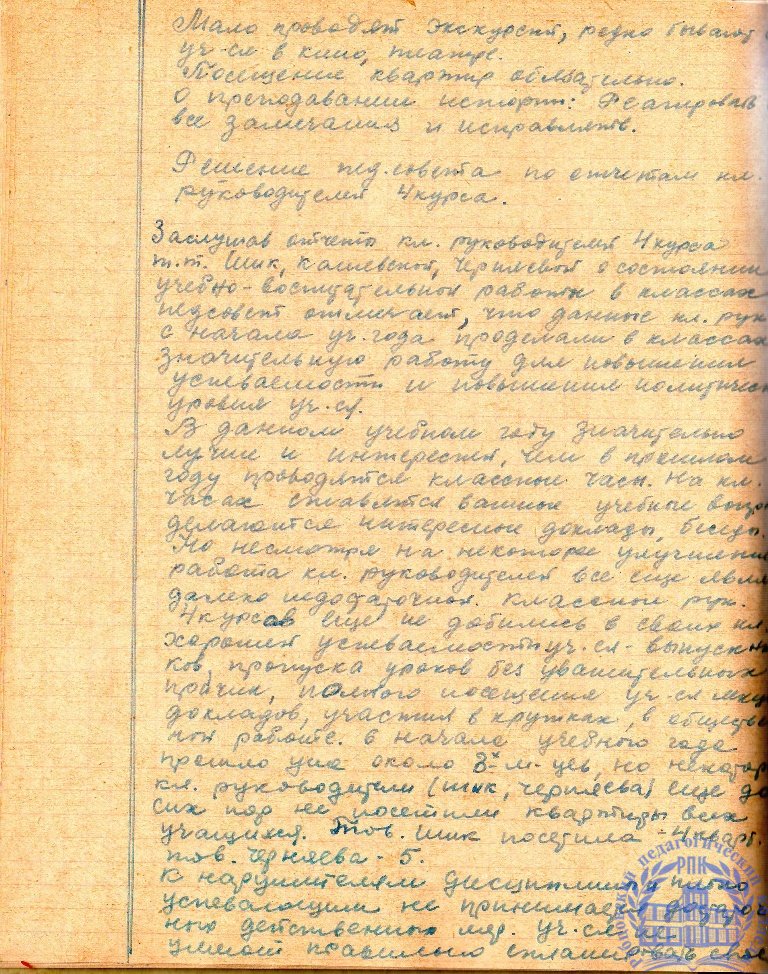 Мало проводят экскурсий, редко бывают
уч-ся в кино, театре.
Посещение квартир обязательно.
О преподавании истории: Реагировать
все замечания и исправлять.
Решение пед.совета по отчетам кл.
руководителей 4 курса.
Заслушав отчеты кл. руководителей 4 курса
т.т. Шик, Калиевской, Черняевой о состоянии
учебно-воспитательной работы в классах
педсовет отмечает, что данные кл. рук
с начала уч. года проделали в классах
значительную работу для повышения
успеваемости и повышения политическ
уровня уч-ся.
В данном учебном году значительно
лучше и интересней, чем в прошлом
году проводятся классные часы. На кл.
часах ставятся важные учебные вопро
делаются интересные доклады, беседы.
Но несмотря на некоторое улучшение
работа кл. руководителей все еще явля
далеко недостаточной. Классные рук.
4 курсов еще не добились в своих кл.
хорошей успеваемости уч-ся-выпускни
ков, пропуска уроков без уважительных
причин, полного посещения уч-ся лекц
докладов, участия в кружках, в обществе
ной работе. В начале учебного года
прошло уже около 3х м-цев, но некотор
кл. руководители (Шик, Черняева) еще до
сих пор не посетили квартиры всех
учащихся. Тов. Шик посетила - 4 кварт.
тов. Черняева - 5.
К нарушителям дисциплины и плохо
успевающим не принимается достаточ
ных действенных мер. Уч-ся не
умеют правильно спланировать свое
педагогический
РПК